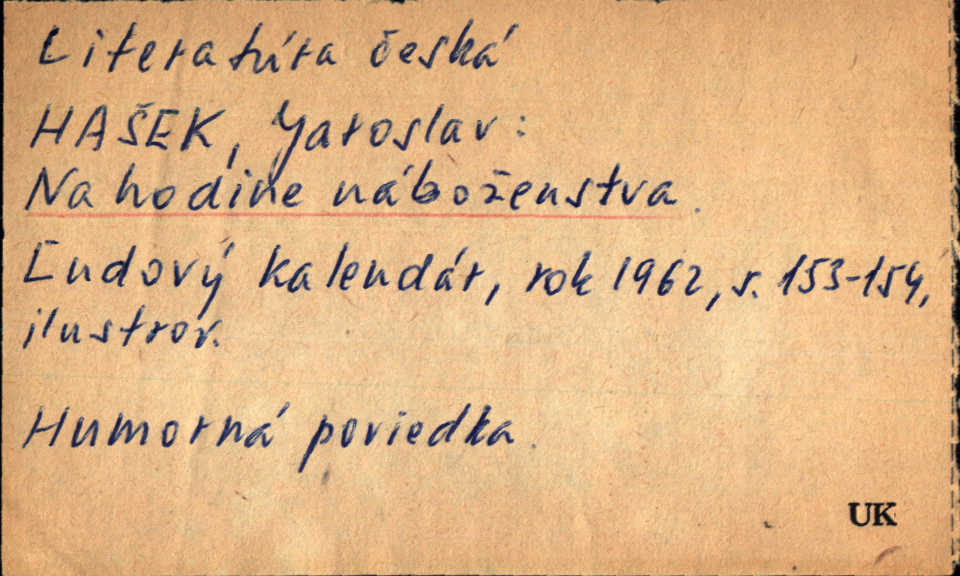 Literatúra česká
HAŠEK, Jaroslav:
Na hodine náboženstva.
Ľudový kalendár, rok 1962, s. 153-154,
ilustrov.
Humorná poviedka.
UK